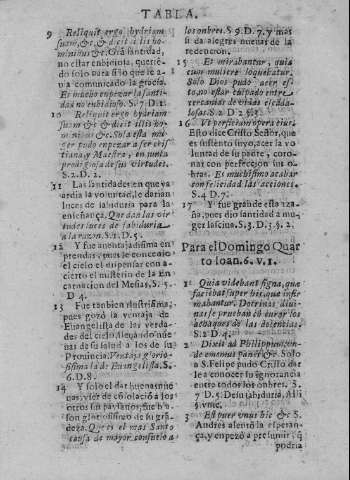 TABLA.
9 Reliquit ergo hydriam
suam, &c. & dicit illis ho-
minibus &c. Gra santidad,
no estar enbidiosa, querie-
do solo para si lo que le a-
via comunicado la gracia.
Es mucho enpezar la santi-
dad no enbidioso. S. 7 D. 1.
10 Reliquit ergo hydriam
suam &c & dicit illis ho-
minibus &c. Sola esta mu-
ger pudo enpezar a ser cris
tiana, y Maestra, en junta
prodigiosa de sus virtudes.
S. 2. D. 2.
11 Las santidades en que ya
ardia la voluntad, le darian
luces de sabiduria para la
enseñança. Que dan las vir
tudes luces de sabiduria
a la razon. S. 2. D. 5.
12 Y fue aventajadisima en
prendas, pues le concedio
el cielo el dispensar con a-
cierto el misterio de la En
carnacion del Mesias. S. 5.
D. 4.
13 Fue tanbien ilustrisima,
pues gozò la ventaja de
Evangelista de las ver-
dades del cielo, llegando nue
vas de su salud a los de su
Provincia. Ventaja glorio-
sissima la de Evangelista. S.
6. D. 8.
14 Y solo el dar buenas nue
vas, y ser de consolacio a los
otros sus paysanos, fue bla-
son gloriosissimo de su gra-
deza. Que es el mas Santo
causa de mayor consuelo a
los onbres. S. 9. D. 7. y mas
si da alegres nuevas de la
redencion.
15 Et mirabantur, quia
cum muliere loquebatur.
Solo Dios pudo acer es-
to, no estar culpado entre
cercanias de vidas escāda-
losas. S. 2. D. 2. §.
16 Vt perficiam opera eius.
Esto dice Cristo Señor, que
es sustento suyo, acer la vo
luntad de su padre, coro-
nar con perfeccion sus o-
bras. Es muchisimo acabar
con felicidad las acciones.
S. 4. D. 7.
17 Y fue grande esta aza-
ña, pues dio santidad a mu-
ger lasciua. S. 3. D. 3. §. 2.
Para el Domingo Quar
to Ioan. 6. v. 1.
1 Quia videbant signa, que
faciebat super his, que infir
mabantur. Dotrinas diui-
nas se prueban cō curar los
achaques de las dolencias.
S. 2. D. 4.
2 Dixit ad Philippum, vn-
de ememus panes &c. Solo
a S. Felipe pudo Cristo dar
le a conocer su ignorancia
entre todos los onbres. S.
7 D. 5. De su sabiduria, Alli
§. vnic.
3 Est puer vnus hic &c S.
Andres alentò la esperan-
ça, y enpezò a presumir, q̃
podria